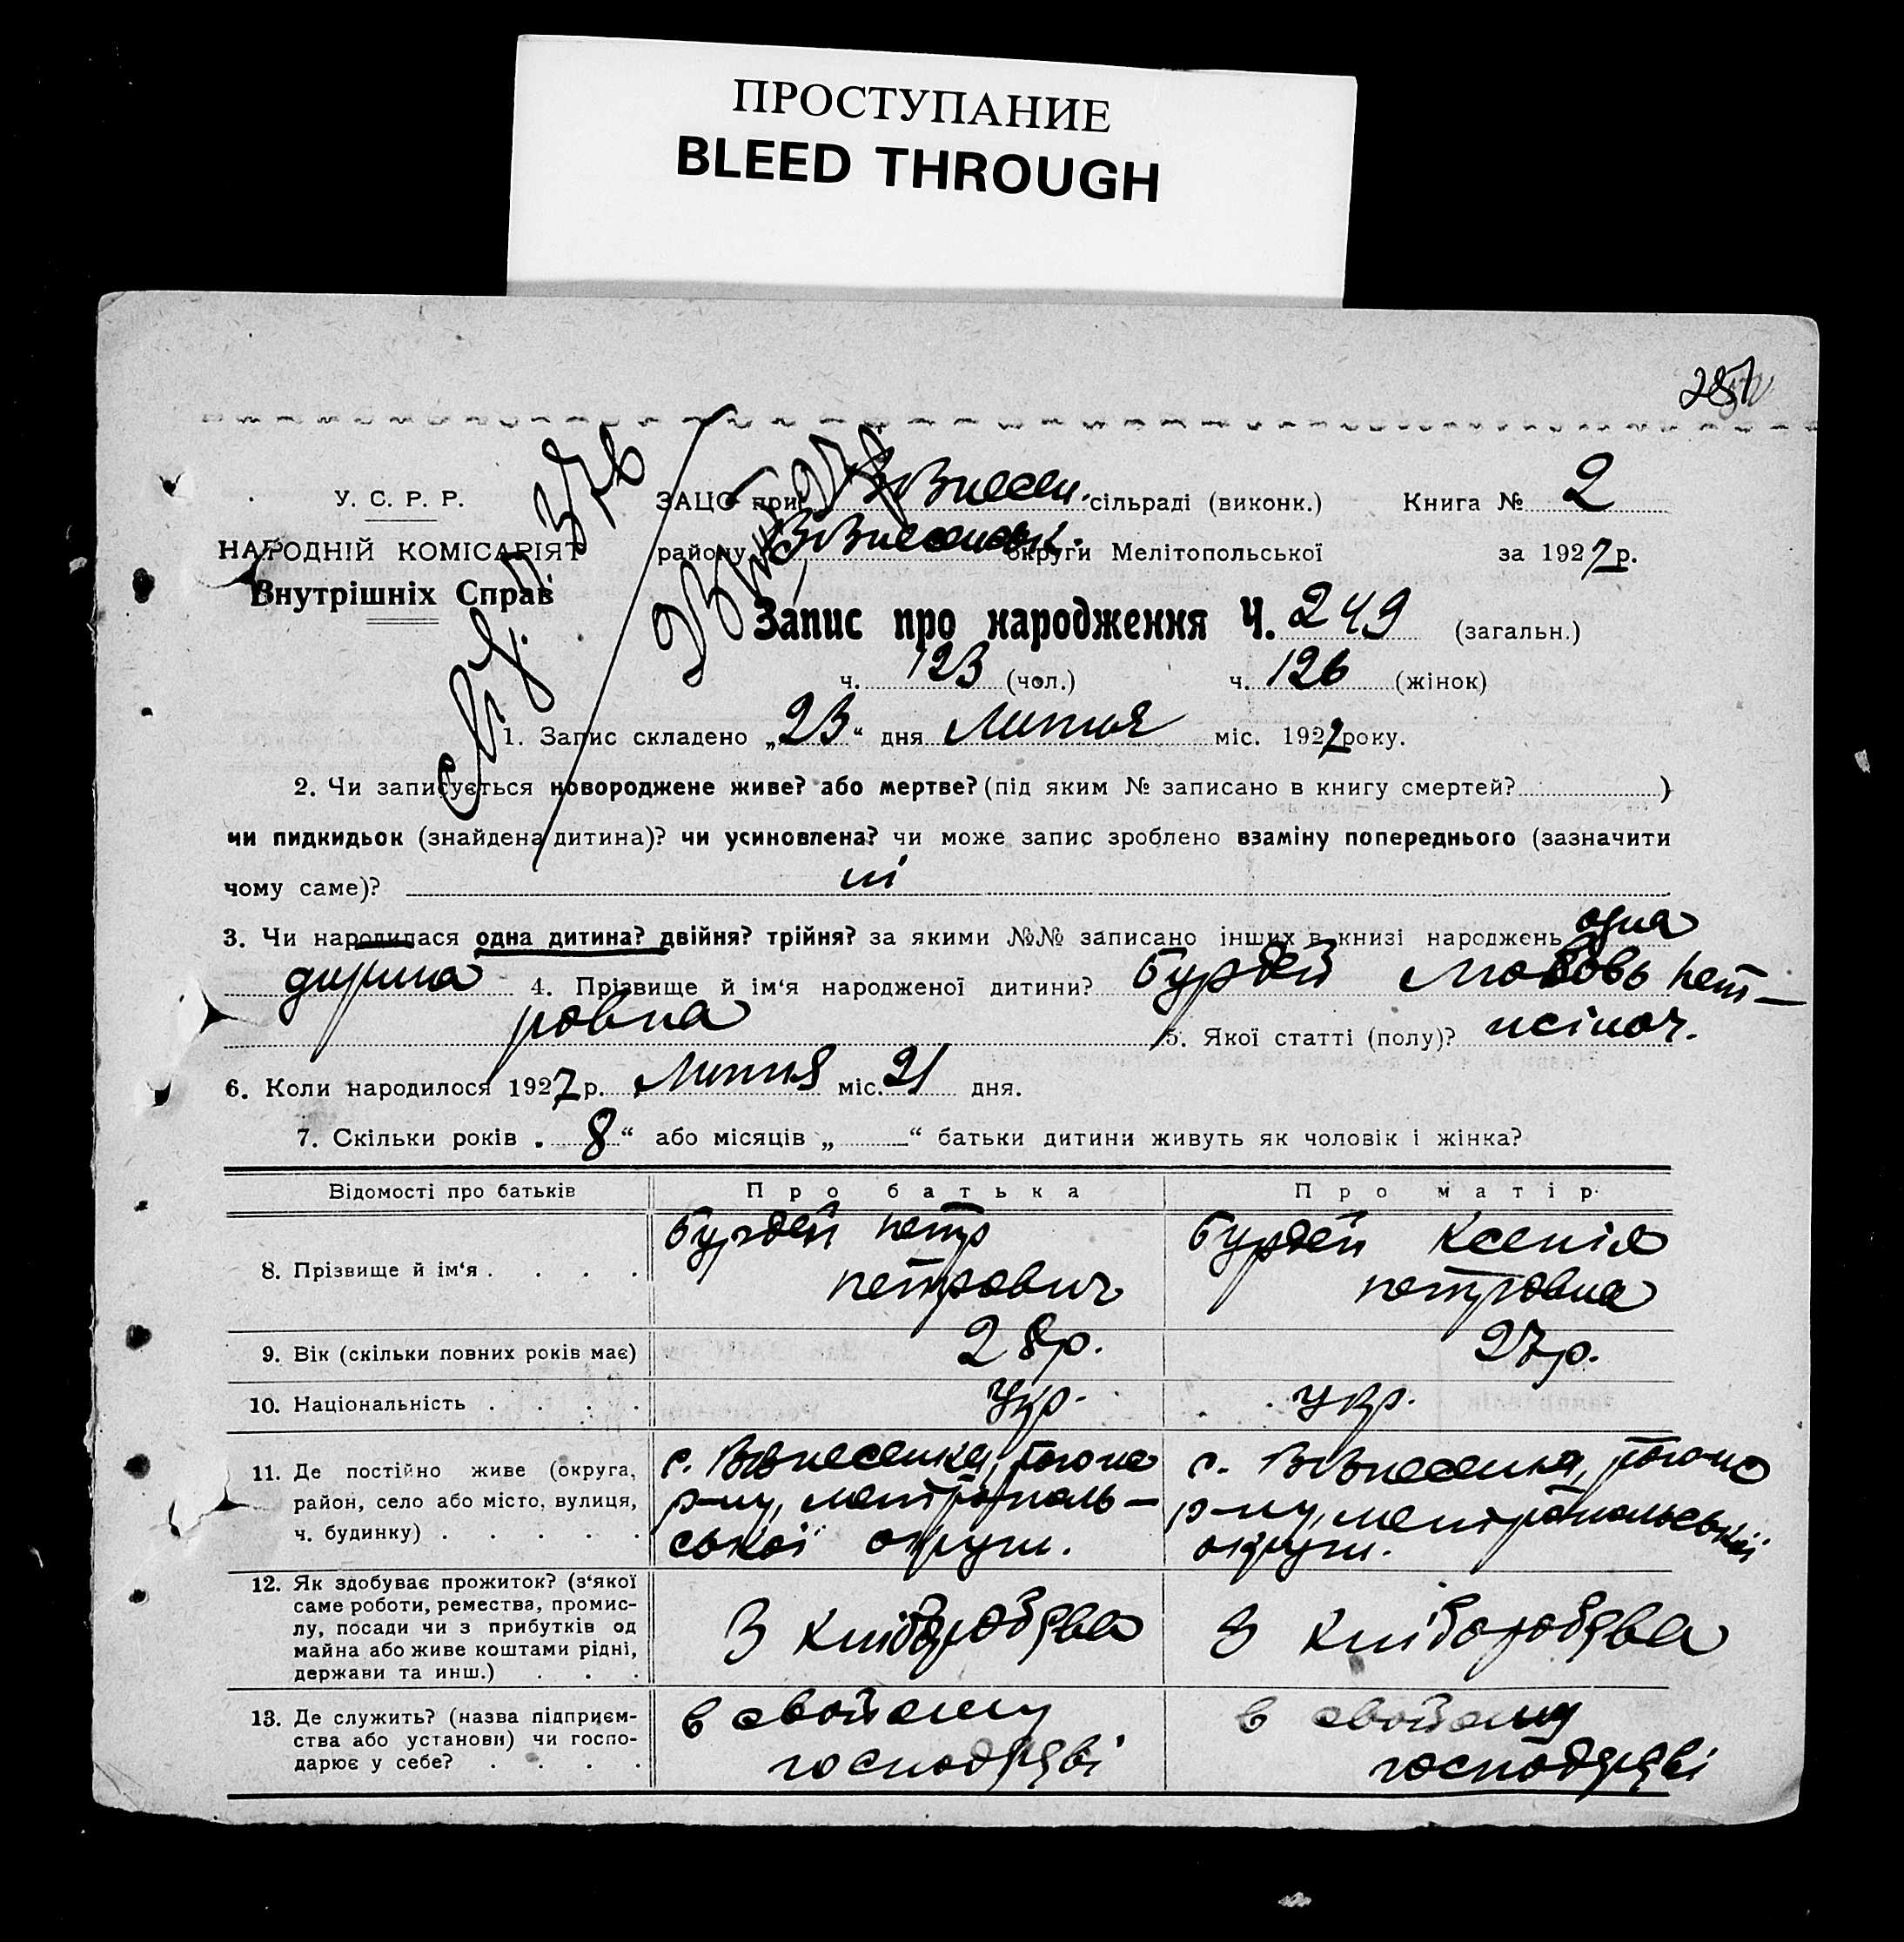 ПРОСТУПАНИЕ
BLEED THROUGH
У. С. Р. Р.
НАРОДНІЙ КОМІСАРІЯТ
Внутрішніх Справ
ЗАЦС при Вознесен. сільраді (виконк.) Книга № 2
району округи Мелітопольської за 1927 р.
Запис про народження Ч. 249 (загальн.)
ч. 123 (чол.) ч. 126 (жінок)
1. Запис складено „23“ дня Липня міс. 1927 року.
2. Чи записується новороджене живе? або мертве? (під яким № записано в книгу смертей? )
чи пидкидьок (знайдена дитина)? чи усиновлена? чи може запис зроблено взаміну попереднього (зазначити
чому саме)? ні
3. Чи народилася одна дитина? двійня? трійня? за якими №№ записано інших в книзі народжень одна
дитина 4. Прізвище й ім‘я народженої дитини? Бурдей Любовь Пет-
ровна 5. Якої статті (полу)? жіноч.
6. Коли народилося 1927 р. Липня міс. 21 дня.
7. Скільки років „ 8 “ або місяців „ “ батьки дитини живуть як чоловік і жінка?
Відомості про батьків Про батька Про матір
8. Прізвище й ім‘я . . . . Бурдей Петр Петрович Бурдей Ксенія Петровна
9. Вік (скільки повних років має) 28 р. 27 р.
10. Національність . . . . Укр. Укр.
11. Де постійно живе (округа, с. Вознесенка, с. Вознесенка,
район, село або місто, вулиця, р-ну, мелітрополь- р-ну, мелітропольської
ч. будинку) . . . . . ської округи. округи.
12. Як здобуває прожиток? (з‘якої
саме роботи, ремества, промис-
лу, посади чи з прибутків од З хліборобства З хліборобства
майна або живе коштами рідні,
держави та инш.) . . .
13. Де служить? (назва підприєм- в свойому в свойому
ства або установи) чи госпо- господрстві господрстві
дарює у себе? . . . .